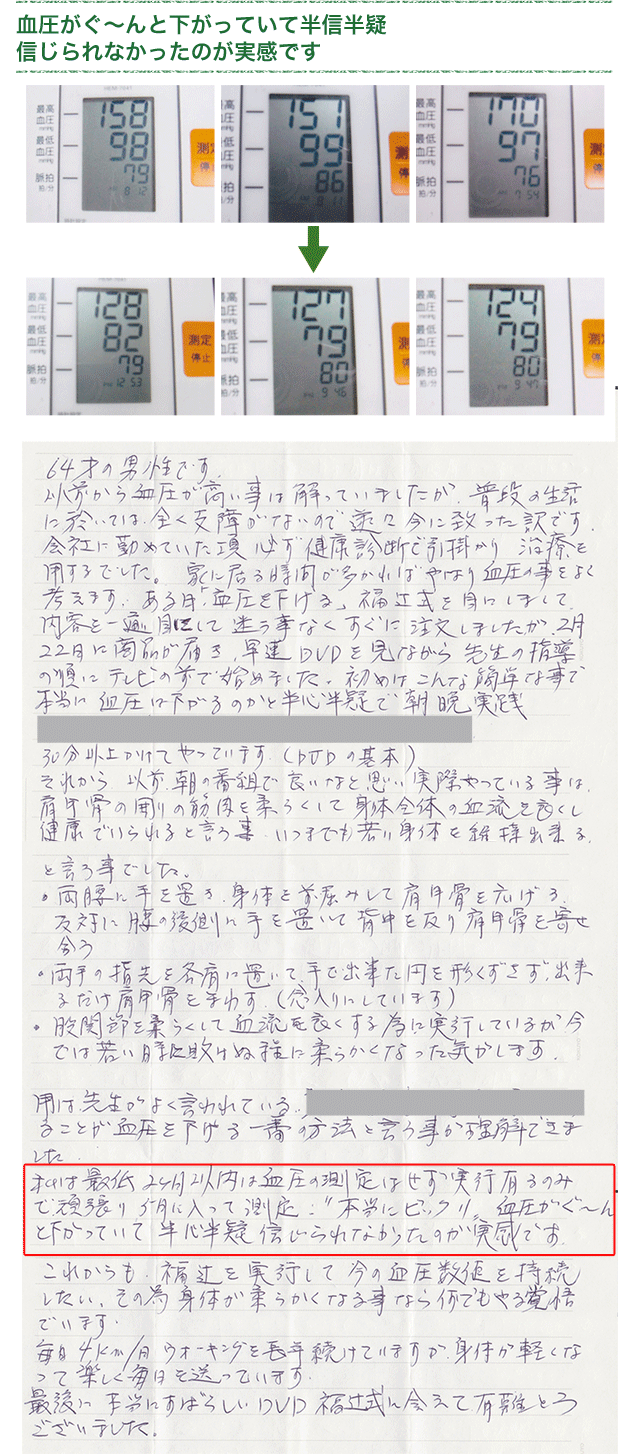 血圧がぐ～んと下がっていて半信半疑
信じられなかったのが実感です
最高血圧mmHg 158
最低血圧mmHg 98
脈拍拍/分 79
8 12
測定
停止
151
99
86
測定
停止
最高血圧mmHg 170
最低血圧mmHg 97
脈拍拍/分 76
7 54
測定
停止
最高血圧mmHg 128
最低血圧mmHg 82
脈拍拍/分 79
12 53
測定
停止
最高血圧mmHg 127
最低血圧mmHg 79
脈拍拍/分 80
9 46
測定
停止
最高血圧mmHg 124
最低血圧mmHg 79
脈拍拍/分 80
9 47
測定
停止
64才の男性です。
以前から血圧が高い事は解っていましたが、普段の生活
に於いては、全く支障がないので延々今に致った訳です。
会社に勤めていた頃 必ず健康診断で引掛かり 治療を
用するでした。 家に居る時間が多かればやはり血圧の事をよく
考えます。ある日「血圧を下げる」福辻式を目にしまして
内容を一通り目にして迷う事なくすぐに注文しましたが、2月
22日に商品が届き、早速DVDを見ながら先生の指導
の順にテレビの前で始めました。初めはこんな簡単な事で
本当に血圧は下がるのかと半心半疑で朝晩実践
30分以上かけてやっています。(DVDの基本)
それから、以前朝の番組で良いなと思い実際やっている事は、
肩甲骨の周りの筋肉を柔らくして身体全体の血流を良くし
健康でいられると言う事、いつまでも若い身体を維持出来る、
と言う事でした。
・両腰に手を置き、身体を前屈みして肩甲骨を広げる、
反対に腰の後側に手を置いて背中を反り肩甲骨を寄せ
合う
・両手の指先を各肩に置いて、手で出来た円を形くずさず、出来
るだけ肩甲骨をまわす。(念入りにしています)
・股関節を柔らくして血流を良くする為に実行しているが今
では若い時に敗けぬ程に柔らかくなった気がします。
用は、先生がよく言われている、
ることが血圧を下げる一番の方法と言う事が理解できま
した。
私は最低2ヶ月以内は血圧の測定はせず実行有るのみ
で頑張り 5月に入って測定、"本当にビックリ" 血圧がぐ～ん
と下がっていて半心半疑 信じられなかったのが実感です。
これからも、福辻を実行して今の血圧数値を持続
したい。その為身体が柔らかくなる事なら何でもやる覚悟
でいます。
毎日4km/日 ウオーキングを長年続けていますが、身体が軽くな
って楽しく毎日を送っています。
最後に 本当にすばらしいDVD福辻式に会えて有難とう
ございました。